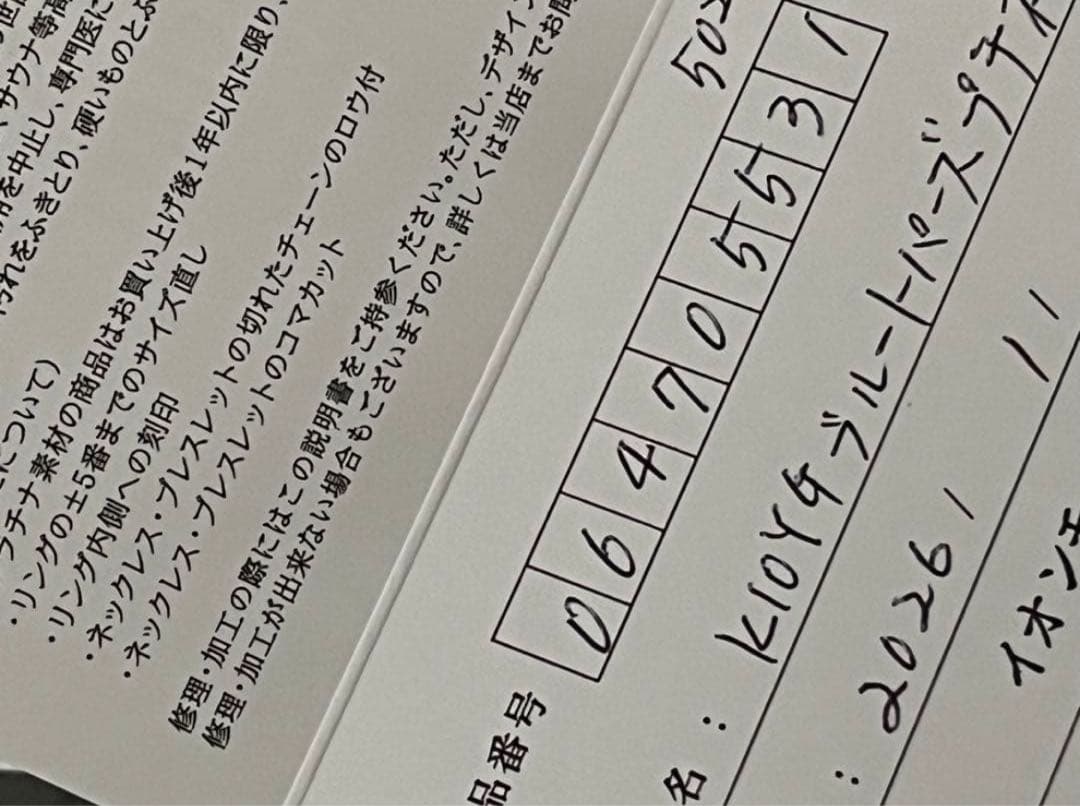 サウナ等高
用を中止し、専門医に
汚れをふきとり、硬いものとぶ
について）
プラチナ素材の商品はお買い上げ後1年以内に限り、
・リングの±5番までのサイズ直し
・リング内側への刻印
・ネックレス・ブレスレットの切れたチェーンのロウ付
・ネックレス・ブレスレットのコマカット
修理・加工の際にはこの説明書をご持参ください。ただし、デザイン
修理・加工が出来ない場合もございますので、詳しくは当店までお問
502
品番号 0 6 4 7 0 5 5 3 1
名： K10YGブルートパーズプチネ
： 2026 / 1 /
イオンモ